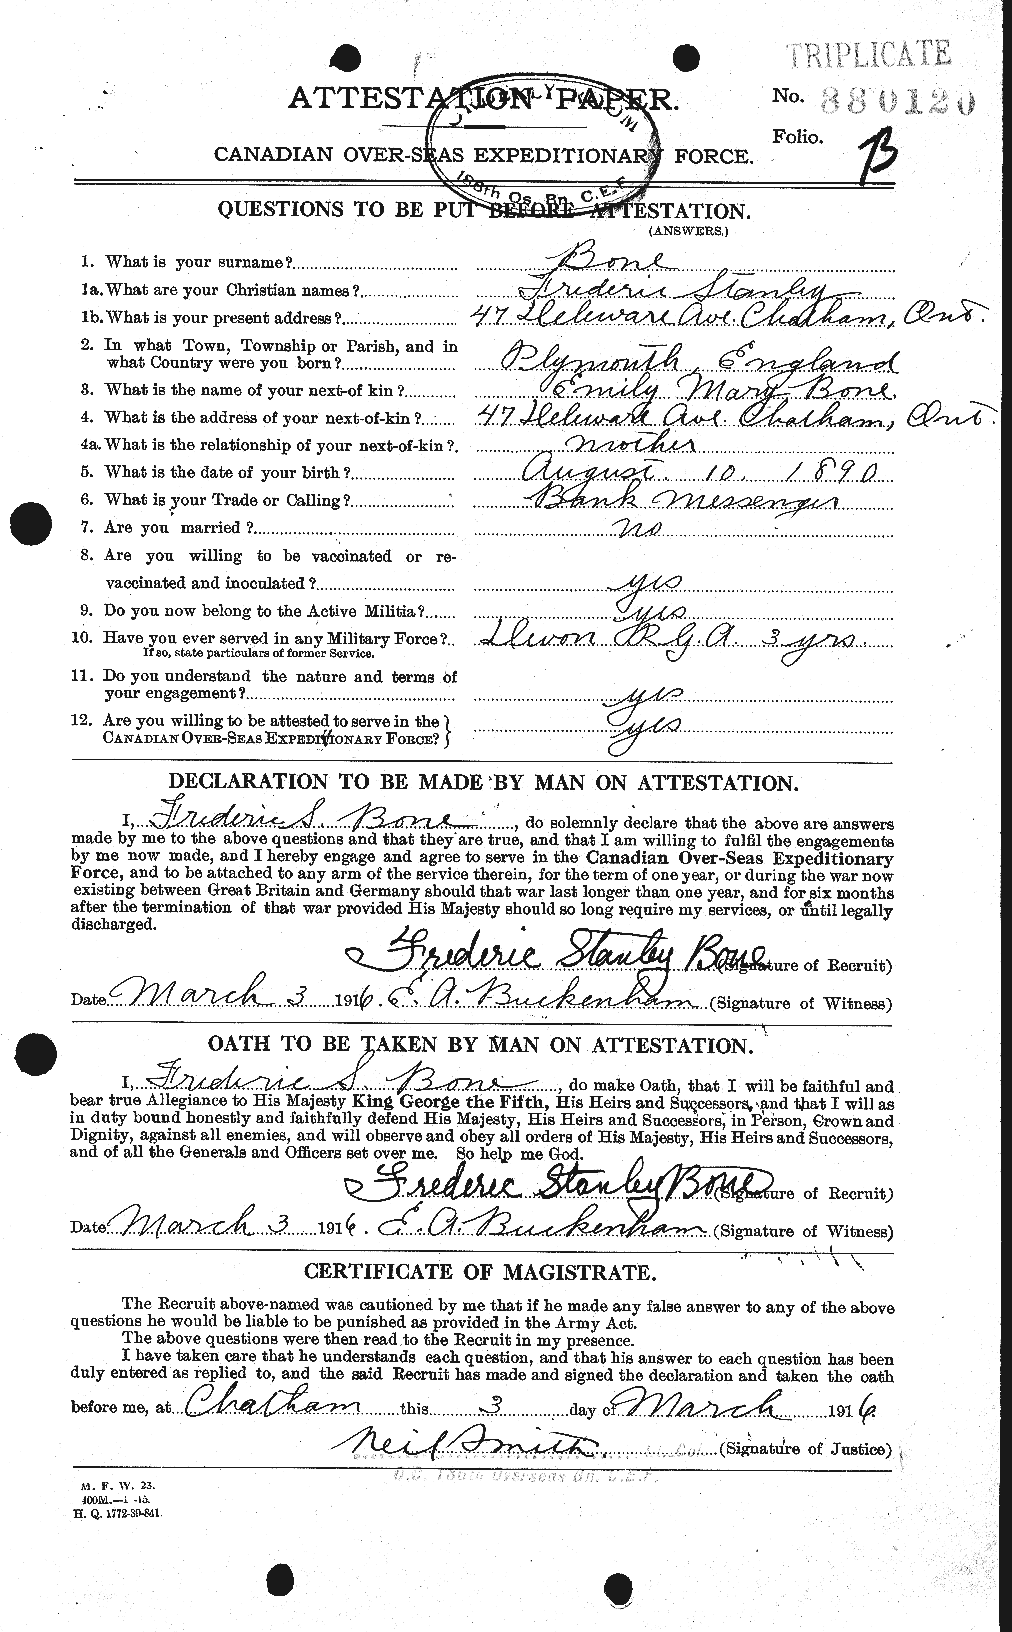 TRIPLICATE
ATTESTATION PAPER.
No. 880120
Folio.
B
CANADIAN OVER-SEAS EXPEDITIONARY FORCE.
ORDERLY ROOM
186th Os. Bn. C.E.F.
QUESTIONS TO BE PUT BEFORE ATTESTATION.
(ANSWERS.)
1. What is your surname? Bone
1a. What are your Christian names? Frederic Stanley
1b. What is your present address? 47 Deleware Ave. Chatham, Ont.
2. In what Town, Township or Parish, and in
what Country were you born? Plymouth, England
3. What is the name of your next-of kin? Emily Mary Bone.
4. What is the address of your next-of-kin? 47 Deleware Ave. Chatham, Ont.
4a. What is the relationship of your next-of-kin? mother
5. What is the date of your birth? August. 10. 1890
6. What is your Trade or Calling? Bank messenger
7. Are you married? no
8. Are you willing to be vaccinated or re-
vaccinated and inoculated? yes
9. Do you now belong to the Active Militia? yes.
10. Have you ever served in any Military Force? Devon R G. A. 3 yrs.
If so, state particulars of former Service.
11. Do you understand the nature and terms of
your engagement? yes
12. Are you willing to be attested to serve in the
CANADIAN OVER-SEAS EXPEDITIONARY FORCE? yes
DECLARATION TO BE MADE BY MAN ON ATTESTATION.
I, Frederic S. Bone, do solemnly declare that the above are answers
made by me to the above questions and that they are true, and that I am willing to fulfil the engagements
by me now made, and I hereby engage and agree to serve in the Canadian Over-Seas Expeditionary
Force, and to be attached to any arm of the service therein, for the term of one year, or during the war now
existing between Great Britain and Germany should that war last longer than one year, and for six months
after the termination of that war provided His Majesty should so long require my services, or until legally
discharged.
Frederic Stanley Bone (Signature of Recruit)
Date March 3 1916. E. A. Buckenham (Signature of Witness)
OATH TO BE TAKEN BY MAN ON ATTESTATION.
I, Frederic S. Bone, do make Oath, that I will be faithful and
bear true Allegiance to His Majesty King George the Fifth, His Heirs and Successors, and that I will as
in duty bound honestly and faithfully defend His Majesty, His Heirs and Successors, in Person, Crown and
Dignity, against all enemies, and will observe and obey all orders of His Majesty, His Heirs and Successors,
and of all the Generals and Officers set over me. So help me God.
Frederic Stanley Bone (Signature of Recruit)
Date March 3 1916. E. A. Buckenham (Signature of Witness)
CERTIFICATE OF MAGISTRATE.
The Recruit above-named was cautioned by me that if he made any false answer to any of the above
questions he would be liable to be punished as provided in the Army Act.
The above questions were then read to the Recruit in my presence.
I have taken care that he understands each question, and that his answer to each question has been
duly entered as replied to, and the said Recruit has made and signed the declaration and taken the oath
before me, at Chatham this 3 day of March 1916
Neil Smith, Lt. Col. (Signature of Justice)
O.C. 186th Overseas Bn. C.E.F.
M. F. W. 23.
400M.—1-15.
H. Q. 1772-39-841